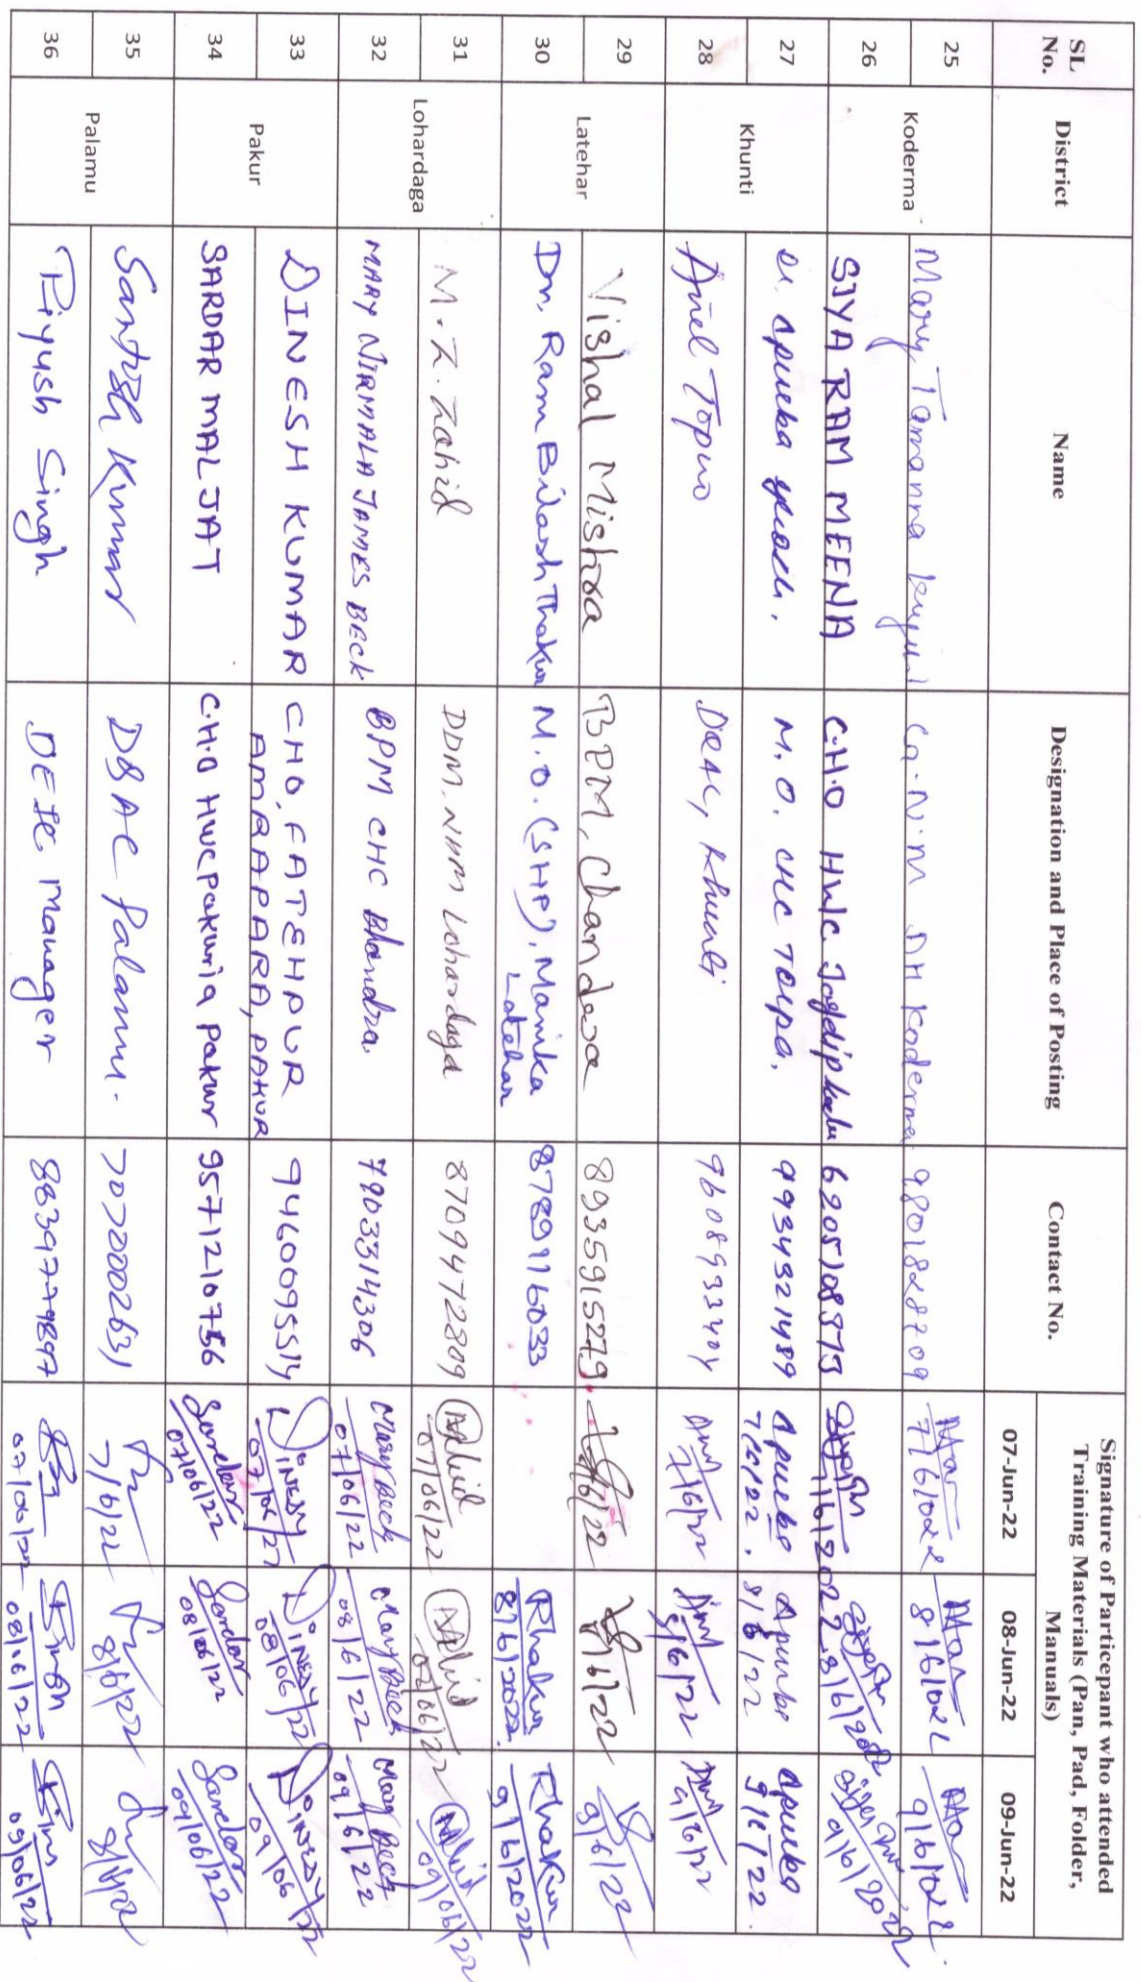 SL No. District Name Designation and Place of Posting Contact No. Signature of Particepant who attended Training Materials (Pan, Pad, Folder, Manuals)
07-Jun-22 08-Jun-22 09-Jun-22
25 Koderma Mary Tamanna DH Koderma 9801828709 7/6/022 8/6/022 9/6/022
26 SIYA RAM MEENA C.H.O HWC. 6205708973 7/6/2022 8/6/2022 9/6/2022
27 Khunti M.O. CHC Torpa, 9934321489 Apurba 7/6/22. Apurba 8/6/22 Apurba 9/6/22
28 Topno Khunti 9608933404 7/6/22 8/6/22 9/6/22
29 Latehar Vishal Mishra BPM, Chandwa 8935915279 7/6/22 8/6/22 9/6/22
30 Dr. Ram Bilash Thakur M.O. (SHP), Manika Latehar 8789116033 Rhakur 8/6/2022. Rhakur 9/6/2022
31 Lohardaga M.Z. Zahid DDM, NHM Lohardaga 8709472809 07/06/22 08/06/22 09/06/22
32 MARY NIRMALA JAMES BECK BPM CHC Bhandra. 7903314306 Mary Beck 07/06/22 Mary Beck 08/6/22 Mary Beck 09/6/22
33 Pakur DINESH KUMAR CHO, FATEHPUR AMRAPARA, PAKUR 9460095514 Dinesh 07/06/22 Dinesh 08/06/22 Dinesh 09/06/22
34 SARDAR MAL JAT C.H.O HWC Pakuria Pakur 9571210756 Sardar 07/06/22 Sardar 08/06/22 Sardar 09/06/22
35 Palamu Santosh Kumar Palamu. 7070002631 7/6/22 8/6/22
36 Piyush Singh DEIC Manager 8839779897 07/06/22 08/06/22 09/06/22